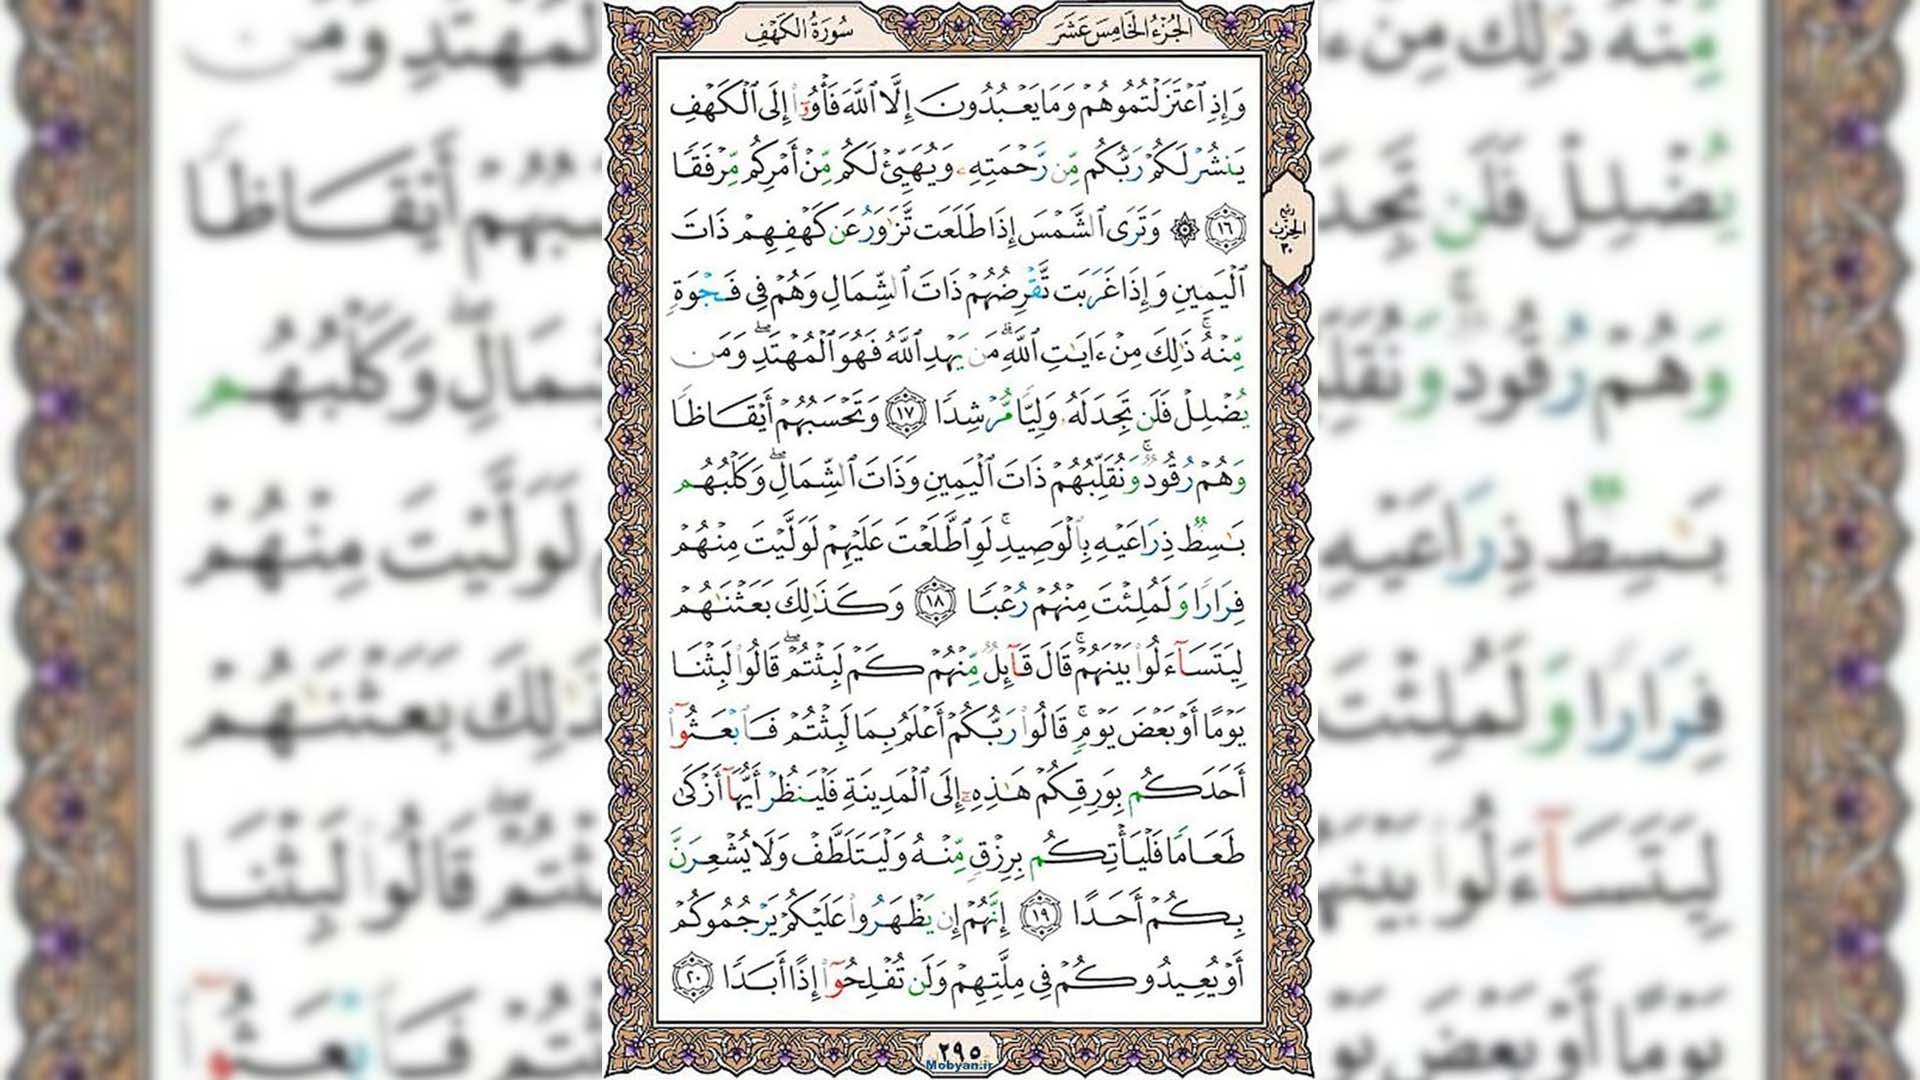 الجزء الخامس عشر
سورة الكهف
وَإِذِ ٱعْتَزَلْتُمُوهُمْ وَمَا يَعْبُدُونَ إِلَّا ٱللَّهَ فَأْوُۥٓا۟ إِلَى ٱلْكَهْفِ
يَنشُرْ لَكُمْ رَبُّكُم مِّن رَّحْمَتِهِۦ وَيُهَيِّئْ لَكُم مِّنْ أَمْرِكُم مِّرْفَقًا
١٦ ۞ وَتَرَى ٱلشَّمْسَ إِذَا طَلَعَت تَّزَٰوَرُ عَن كَهْفِهِمْ ذَاتَ
ربع الحزب ٣٠
ٱلْيَمِينِ وَإِذَا غَرَبَت تَّقْرِضُهُمْ ذَاتَ ٱلشِّمَالِ وَهُمْ فِى فَجْوَةٍ
مِّنْهُ ۚ ذَٰلِكَ مِنْ ءَايَٰتِ ٱللَّهِ ۗ مَن يَهْدِ ٱللَّهُ فَهُوَ ٱلْمُهْتَدِ ۖ وَمَن
يُضْلِلْ فَلَن تَجِدَ لَهُۥ وَلِيًّا مُّرْشِدًا ١٧ وَتَحْسَبُهُمْ أَيْقَاظًا
وَهُمْ رُقُودٌ ۚ وَنُقَلِّبُهُمْ ذَاتَ ٱلْيَمِينِ وَذَاتَ ٱلشِّمَالِ ۖ وَكَلْبُهُم
بَٰسِطٌ ذِرَاعَيْهِ بِٱلْوَصِيدِ ۚ لَوِ ٱطَّلَعْتَ عَلَيْهِمْ لَوَلَّيْتَ مِنْهُمْ
فِرَارًا وَلَمُلِئْتَ مِنْهُمْ رُعْبًا ١٨ وَكَذَٰلِكَ بَعَثْنَٰهُمْ
لِيَتَسَآءَلُوا۟ بَيْنَهُمْ ۚ قَالَ قَآئِلٌ مِّنْهُمْ كَمْ لَبِثْتُمْ ۖ قَالُوا۟ لَبِثْنَا
يَوْمًا أَوْ بَعْضَ يَوْمٍ ۚ قَالُوا۟ رَبُّكُمْ أَعْلَمُ بِمَا لَبِثْتُمْ فَٱبْعَثُوٓا۟
أَحَدَكُم بِوَرِقِكُمْ هَٰذِهِۦٓ إِلَى ٱلْمَدِينَةِ فَلْيَنظُرْ أَيُّهَآ أَزْكَىٰ
طَعَامًا فَلْيَأْتِكُم بِرِزْقٍ مِّنْهُ وَلْيَتَلَطَّفْ وَلَا يُشْعِرَنَّ
بِكُمْ أَحَدًا ١٩ إِنَّهُمْ إِن يَظْهَرُوا۟ عَلَيْكُمْ يَرْجُمُوكُمْ
أَوْ يُعِيدُوكُمْ فِى مِلَّتِهِمْ وَلَن تُفْلِحُوٓا۟ إِذًا أَبَدًا ٢٠
٢٩٥
Mobyan.ir